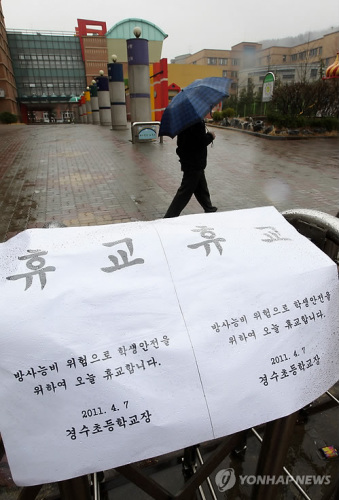 휴 교
방사능비 위험으로 학생안전을
위하여 오늘 휴교합니다.
2011. 4. 7
경수초등학교장
휴 교
방사능비 위험으로 학생안전을
위하여 오늘 휴교합니다.
2011. 4. 7
경수초등학교장
YONHAP NEWS